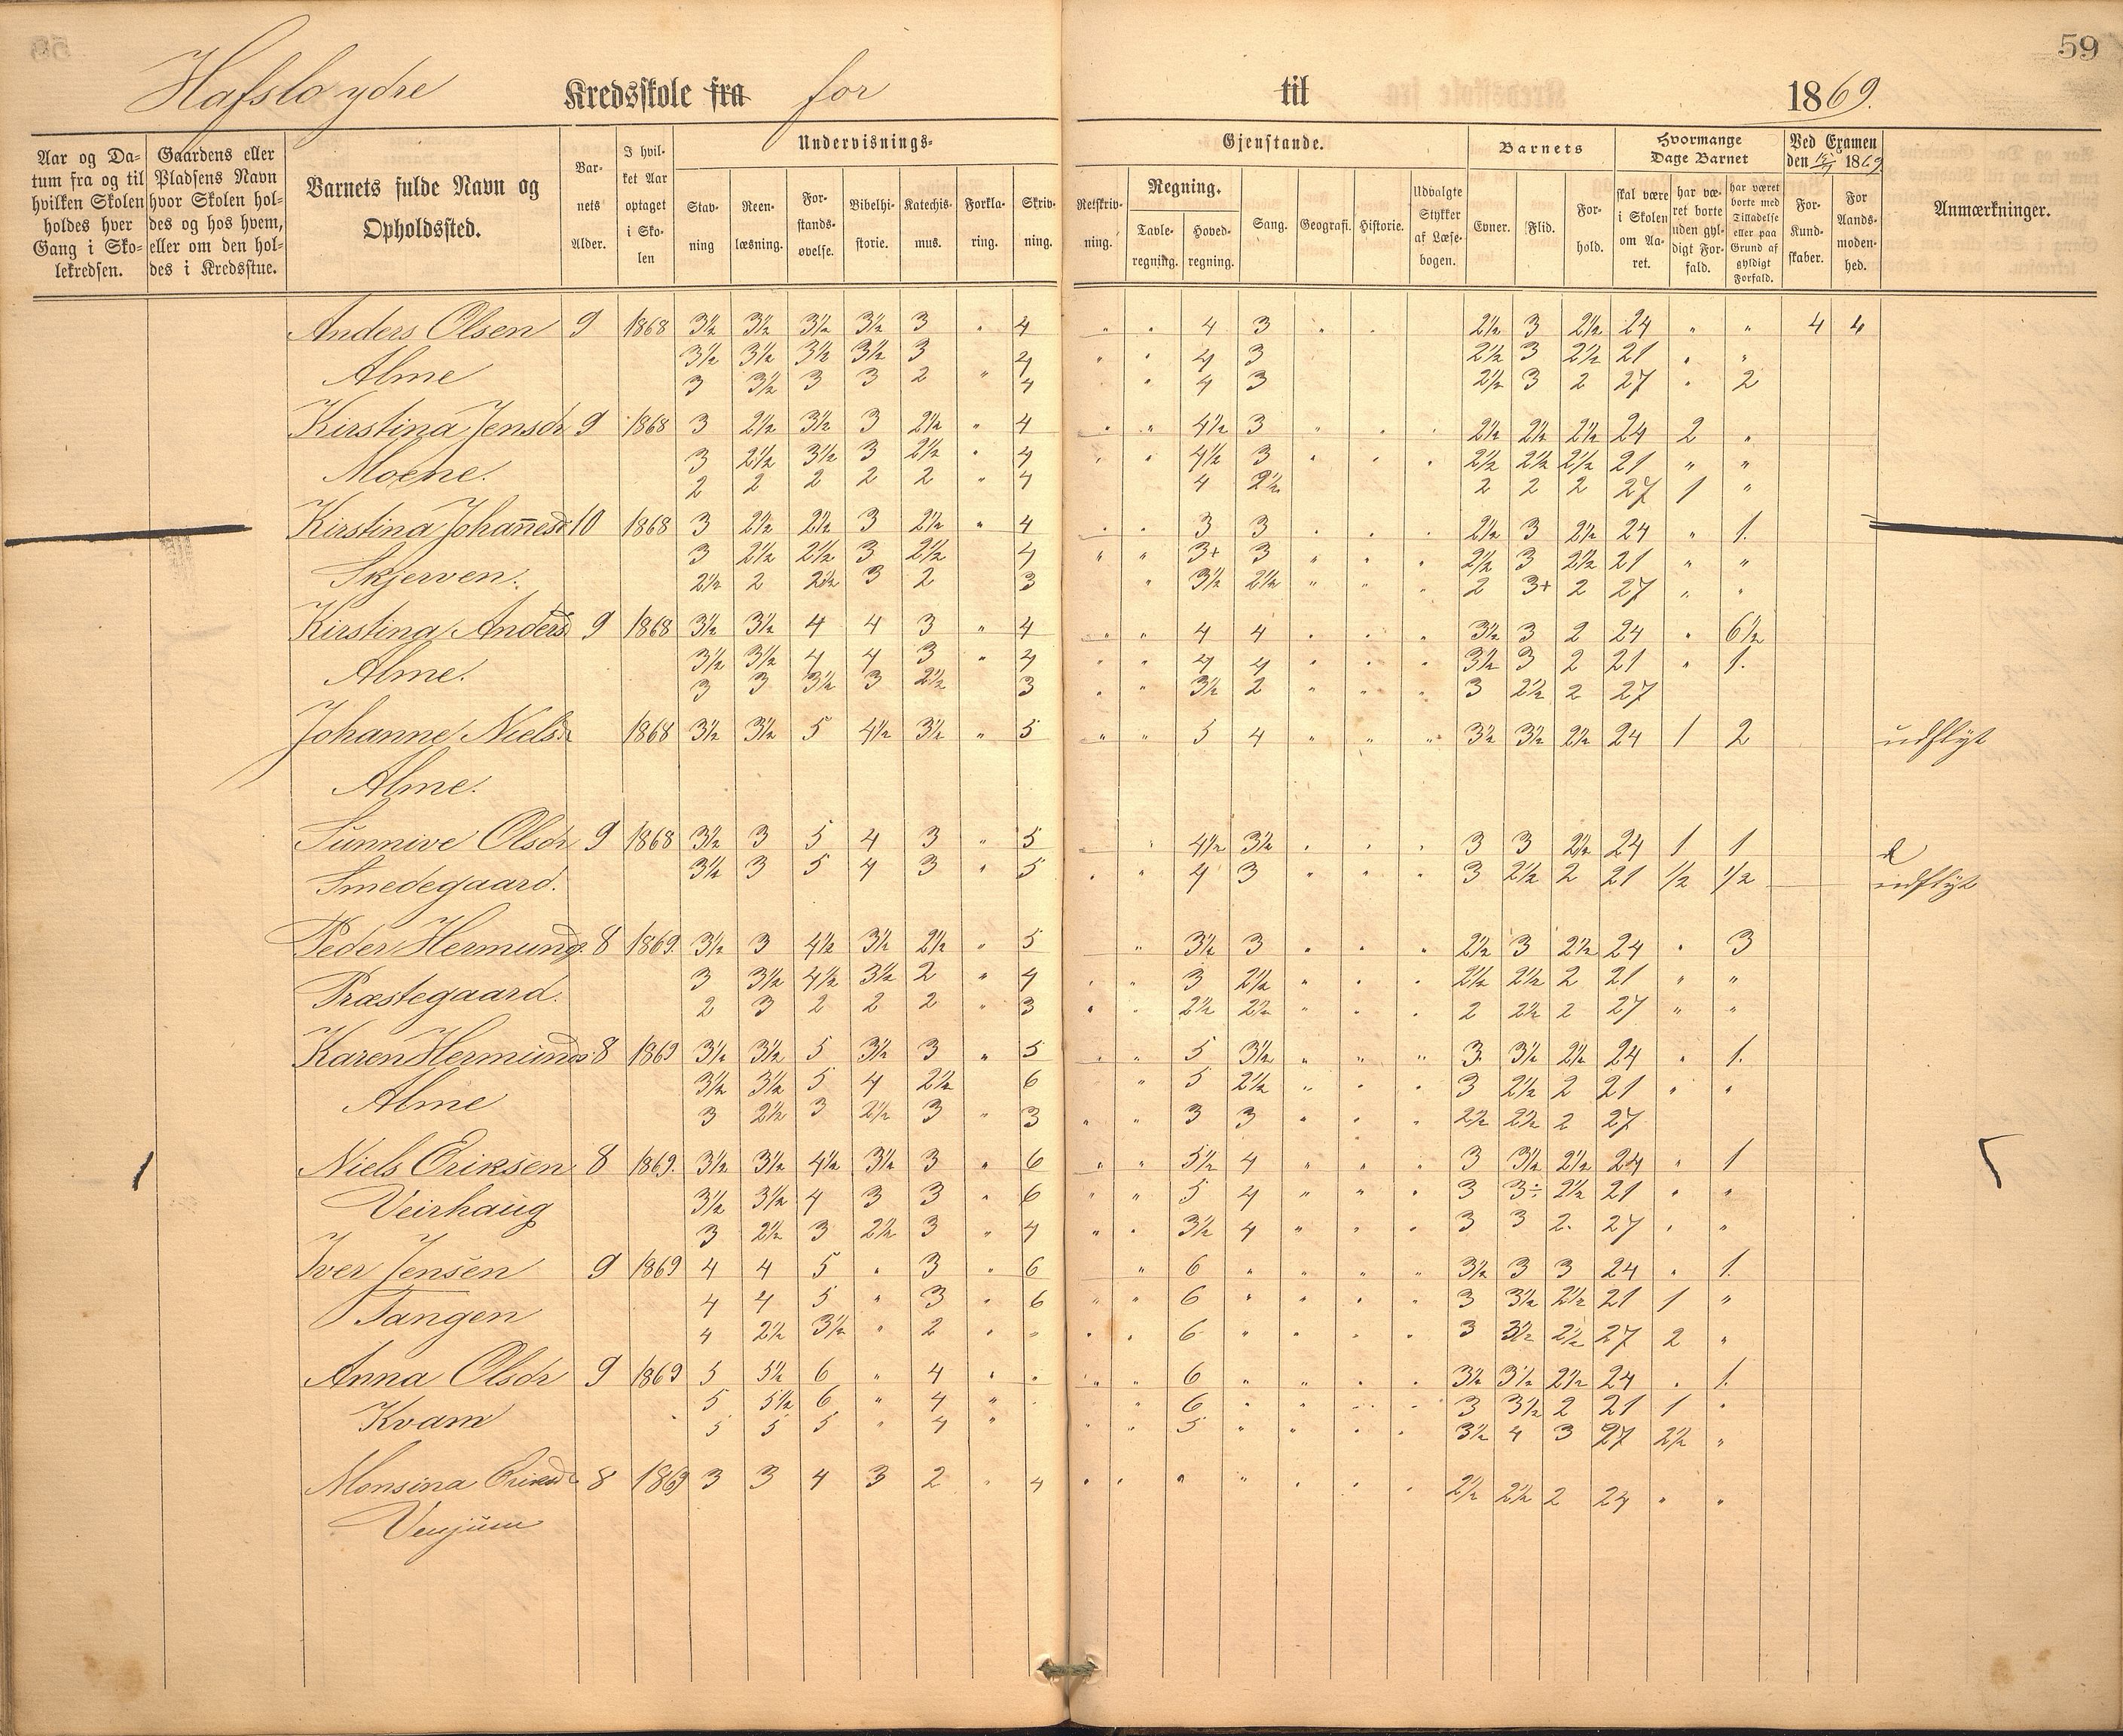 59
Hafslo ydre Kredsskole fra for til 1869.
Aar og Datum fra og til hvilken Skolen holdes hver Gang i Skolekredsen.
Gaardens eller Pladsens Navn hvor Skolen holdes og hos hvem, eller om den holdes i Kredsstue.
Barnets fulde Navn og Opholdssted.
Barnets Alder.
I hvilket Aar optaget i Skolen
Undervisnings-
Stavning
Reenlæsning.
Forstandsøvelse.
Bibelhistorie.
Katechismus.
Forklaring.
Skrivning.
Gjenstande.
Retskrivning.
Regning.
Tavleregning.
Hovedregning.
Sang.
Geografi.
Historie.
Udvalgte Stykker af Læsebogen.
Barnets
Evner.
Flid.
Forhold.
Hvormange Dage Barnet
skal være i Skolen om Aaret.
har været borte uden gyldigt Forfald.
har været borte med Tilladelse eller paa Grund af gyldigt Forfald.
Ved Examen den 1869
For Kundskaber.
For Aandsmodenhed.
Anmærkninger.
Anders Olsen 9 1868 3½ 3½ 3½ 3½ 3 " 4 " " 4 3 " " 2½ 3 2½ 24 " " 4 4
3½ 3½ 3½ 3½ 3 4 " " 4 3 2½ 3 2½ 21 " "
Alme 3 3½ 3 3 2 " 4 " 4 3 2½ 3 2 27 " 2
Kirstina Jensdr 9 1868 3 2½ 3½ 3 2½ " 4 " " 4½ 3 " " " 2½ 2½ 2½ 24 2 "
3 2½ 3½ 3 2½ " 4 " " 4½ 3 " " " 2½ 2½ 2½ 21 " "
Moene. 2 2 2 2 2 " 4 4 2½ 2 2 2 27 1 "
Kirstina Johan̄esdr 10 1868 3 2½ 2½ 3 2½ " 4 " " 3 3 " " " 2½ 3 2½ 24 " 1.
3 2½ 2½ 3 2½ 4 " " 3+ 3 " " " 2½ 3 2½ 21 " "
Skjerven. 2½ 2 2½ 3 2 3 " 3½ 2½ " " " 2 3+ 2 27 " "
Kirstina Anders 9 1868 3½ 3½ 4 4 3 " 4 " " 4 4 " " " 3½ 3 2 24 " 6½
3½ 3½ 4 4 3 " 4 " " 4 4 " " " 3½ 3 2 21 " 1.
Alme. 3 3 3½ 3 2½ 3 " " 3½ 2 " " " 3 2½ 2 27
Johanne Nielsdr 1868 3½ 3½ 5 4½ 3½ " 5 " " 5 4 " " " 3½ 3½ 2½ 24 1 2 udflyt
Alme.
Sunnive Olsdr 9 1868 3½ 3 5 4 3 " 5 " 4½ 3½ " " " 3 3 2½ 24 1 1
3½ 3 5 4 3 " 5 " " 4 3 " " " 3 2½ 2 21 ½ ½ udflyt
Smedegaard.
Peder Hermund. 8 1869. 3½ 3 4½ 3½ 2½ " 5 " 3½ 3 " " " 2½ 3 2½ 24 " 3
3 3½ 4½ 3½ 2 " 4 " " 3 2½ " " " 2½ 2½ 2 21 " "
Præstegaard. 2 3 2 2 2 " 3 " " 2½ 2½ " " " 2 2½ 2 27 " "
Karen Hermunds 8 1869 3½ 3½ 5 3½ 3 " 5 " " 5 3½ " " " 3 3½ 2½ 24 " 1.
3½ 3½ 5 4 2½ 6 " 5 2½ " " " 3 2½ 2 21 " "
Alme 3 2½ 3 2½ 3 " 3 " " 3 3 " " " 2½ 2½ 2 27
Niels Eriksen 8 1869. 3½ 3½ 4½ 3½ 3 " 6 " " 5½ 4 " " " 3 3½ 2½ 24 " 1
3½ 3½ 4 3 3 " 6 " " 5 4 " " " 3 3÷ 2½ 21 " "
Veirhaug 3 2½ 3 2½ 3 " 4 " " 3½ 4 " " " 3 3 2. 27 " "
Iver Jensen 9 1869 4 4 5 " 3 " 6 " 6 " " " " 3½ 3 3 24 " 1.
4 4 5 " 3 " 6 " " 6 " " " " 3 3½ 2½ 21 1 "
Tangen 4 2½ 3½ " 2 " " " " 6 " " " " 3 3½ 2½ 27 2 "
Anna Olsdr 9 1869 5 5½ 6 " 4 " " " " 6 " " " " 3½ 3½ 2½ 24 " 1.
5 5½ 6 " 4 " " " 6 " " " " 3 3½ 2 21 1 "
Kvam 5 5 5 " 4 " " " 5 " " " " 3½ 4 3 27 2½ "
Monsina Eriksdr 8 1869 3 3 4 3 2 " 4 " " " " " " " 2½ 2½ 2 24 " "
Venjum